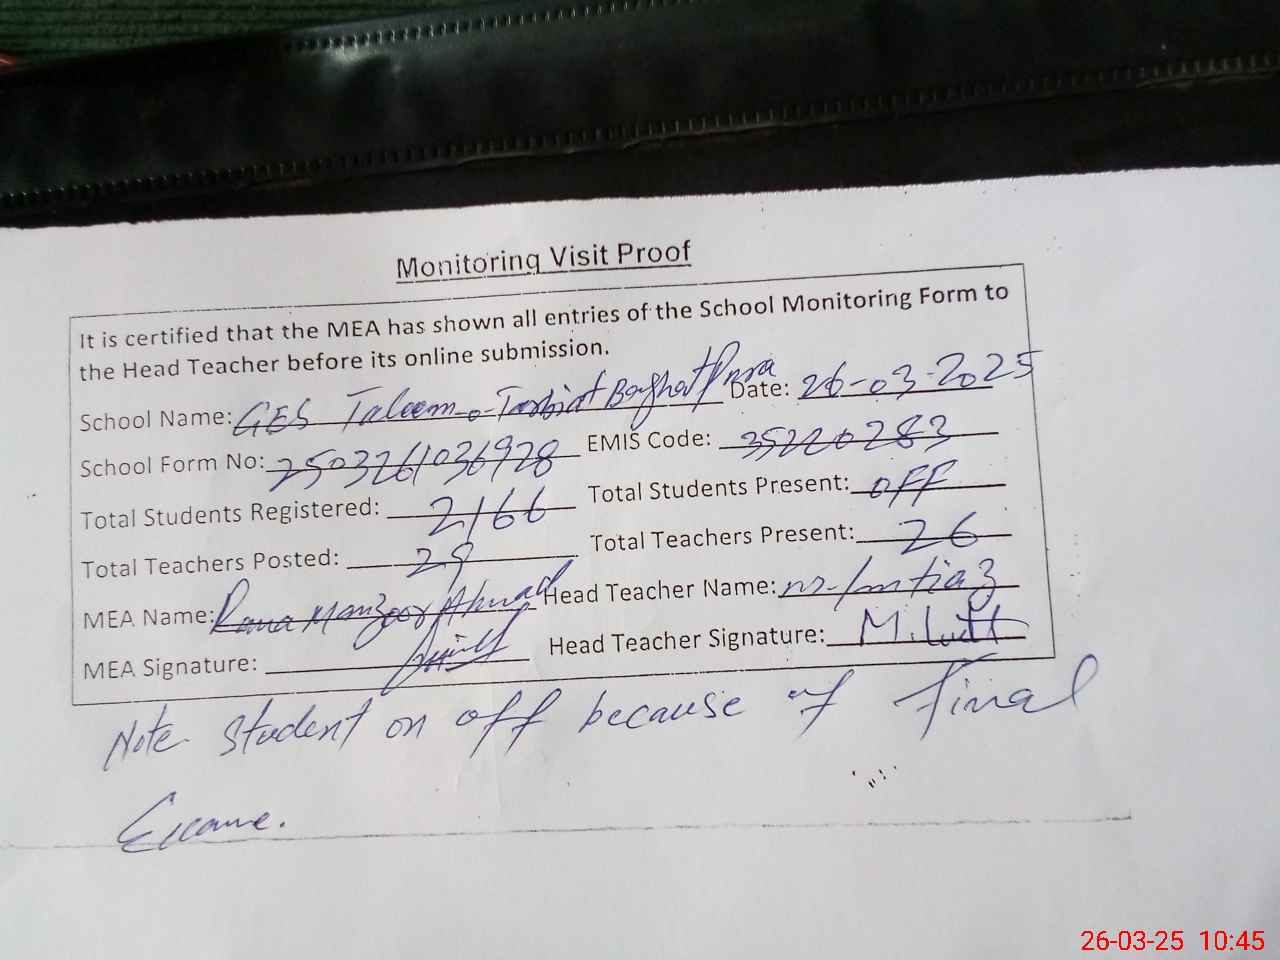 Monitoring Visit Proof
It is certified that the MEA has shown all entries of the School Monitoring Form to
the Head Teacher before its online submission.
School Name: GES Taleem-o-Tarbiat Baghat Pura Date: 26-03-2025
School Form No: 2503261036928 EMIS Code: 35220283
Total Students Registered: 2166 Total Students Present: off
Total Teachers Posted: 29 Total Teachers Present: 26
MEA Name: Rana Manzoor Ahmad Head Teacher Name: Imtiaz
MEA Signature: Head Teacher Signature:
Note Student on off because of final
Exame.
26-03-25 10:45